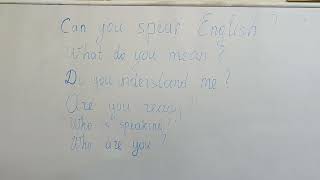 Can you speak English ?
What do you mean ?
Do you understand me ?
Are you ready
Who is speaking?
Who are you ?